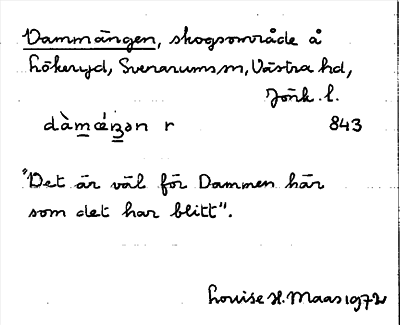 Dammängen, skogsområde å
Hökeryd, Svenarums sn, Västra hd,
Jönk. l.
dàmæ̀ŋən r 843
"Det är väl för Dammen här
som det har blitt".
Louise H. Maas 1972